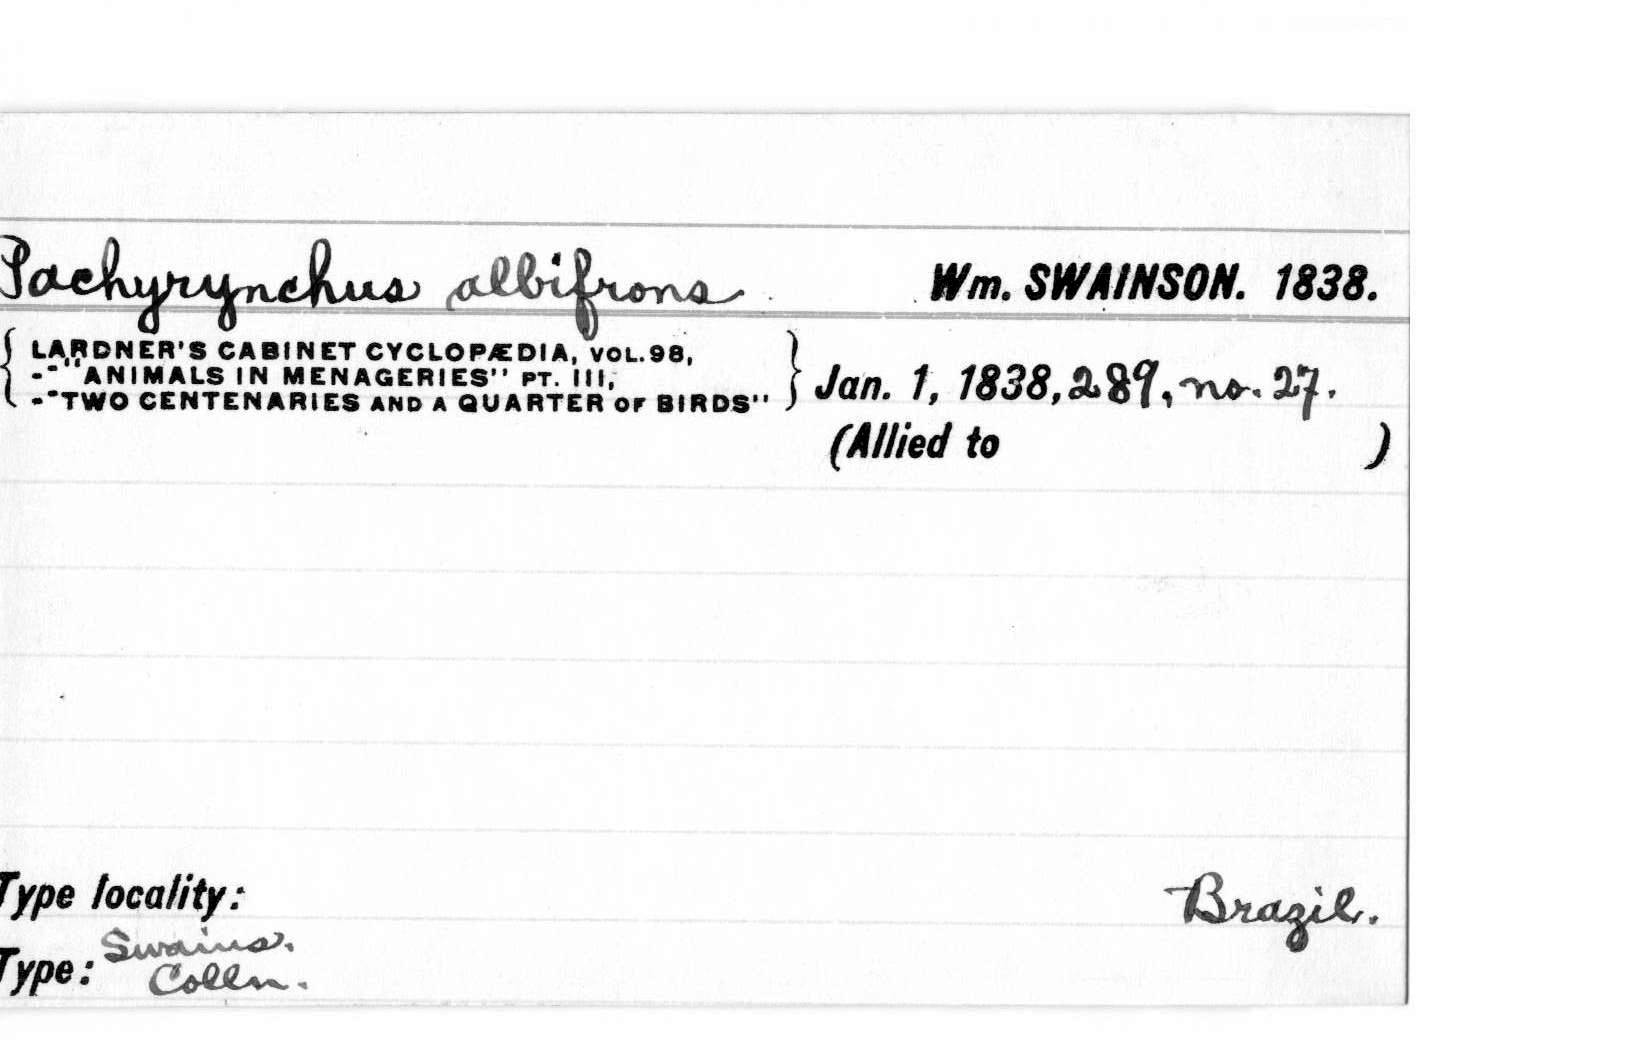 Pachyrynchus albifrons. Wm. SWAINSON. 1838.
LARDNER'S CABINET CYCLOPÆDIA, VOL.98,
-- "ANIMALS IN MENAGERIES" PT. III,
-- "TWO CENTENARIES AND A QUARTER OF BIRDS" Jan. 1, 1838, 289, no. 27.
(Allied to )
Type locality: Brazil.
Swains.
Type: Colln.